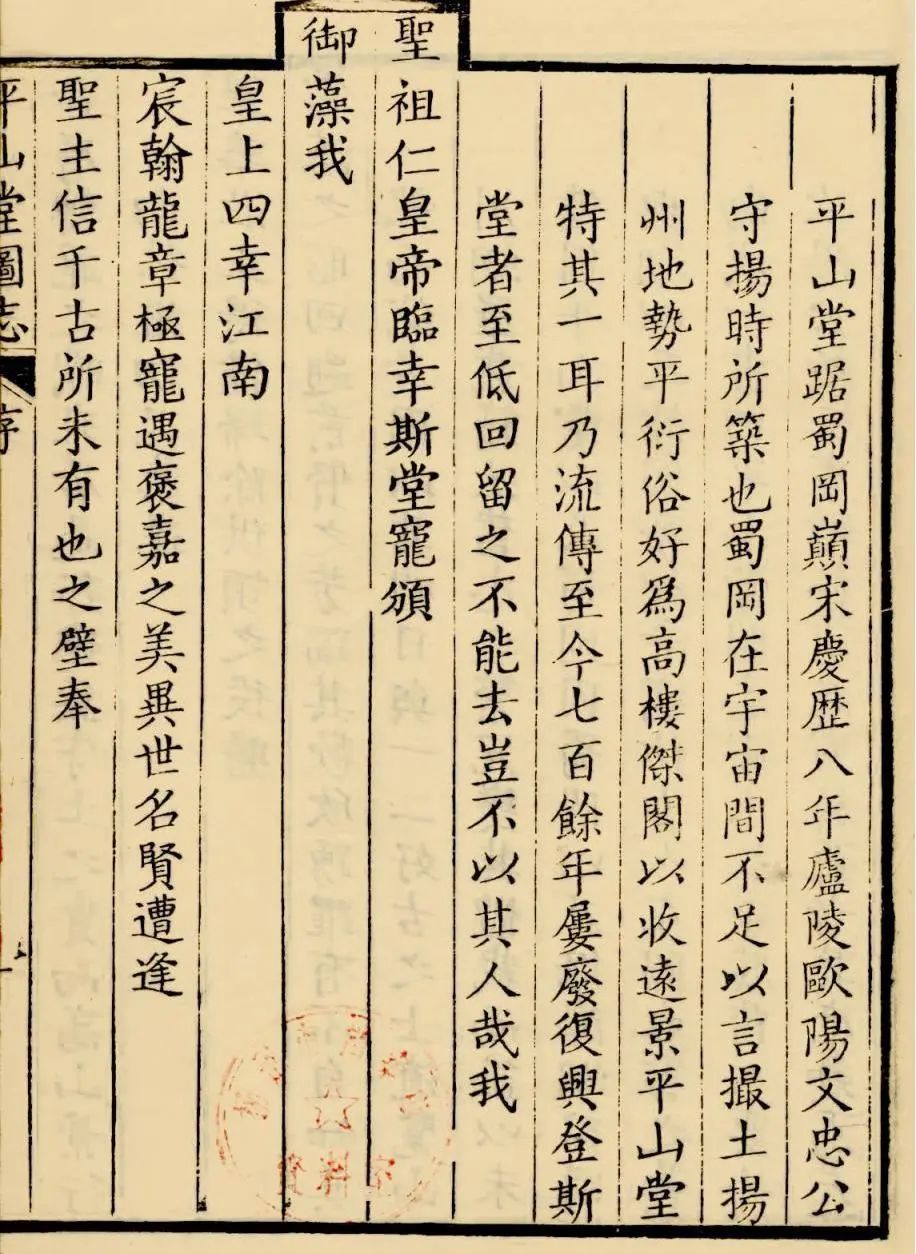 平山堂踞蜀岡巔宋慶歷八年廬陵歐陽文忠公
守揚時所築也蜀岡在宇宙間不足以言撮土揚
州地勢平衍俗好爲高樓傑閣以收遠景平山堂
特其一耳乃流傳至今七百餘年屢廢復興登斯
堂者至低回留之不能去豈不以其人哉我
聖祖仁皇帝臨幸斯堂寵頒
御藻我
皇上四幸江南
宸翰龍章極寵遇褒嘉之美異世名賢遭逢
聖主信千古所未有也之壁奉
平山堂圖志 序